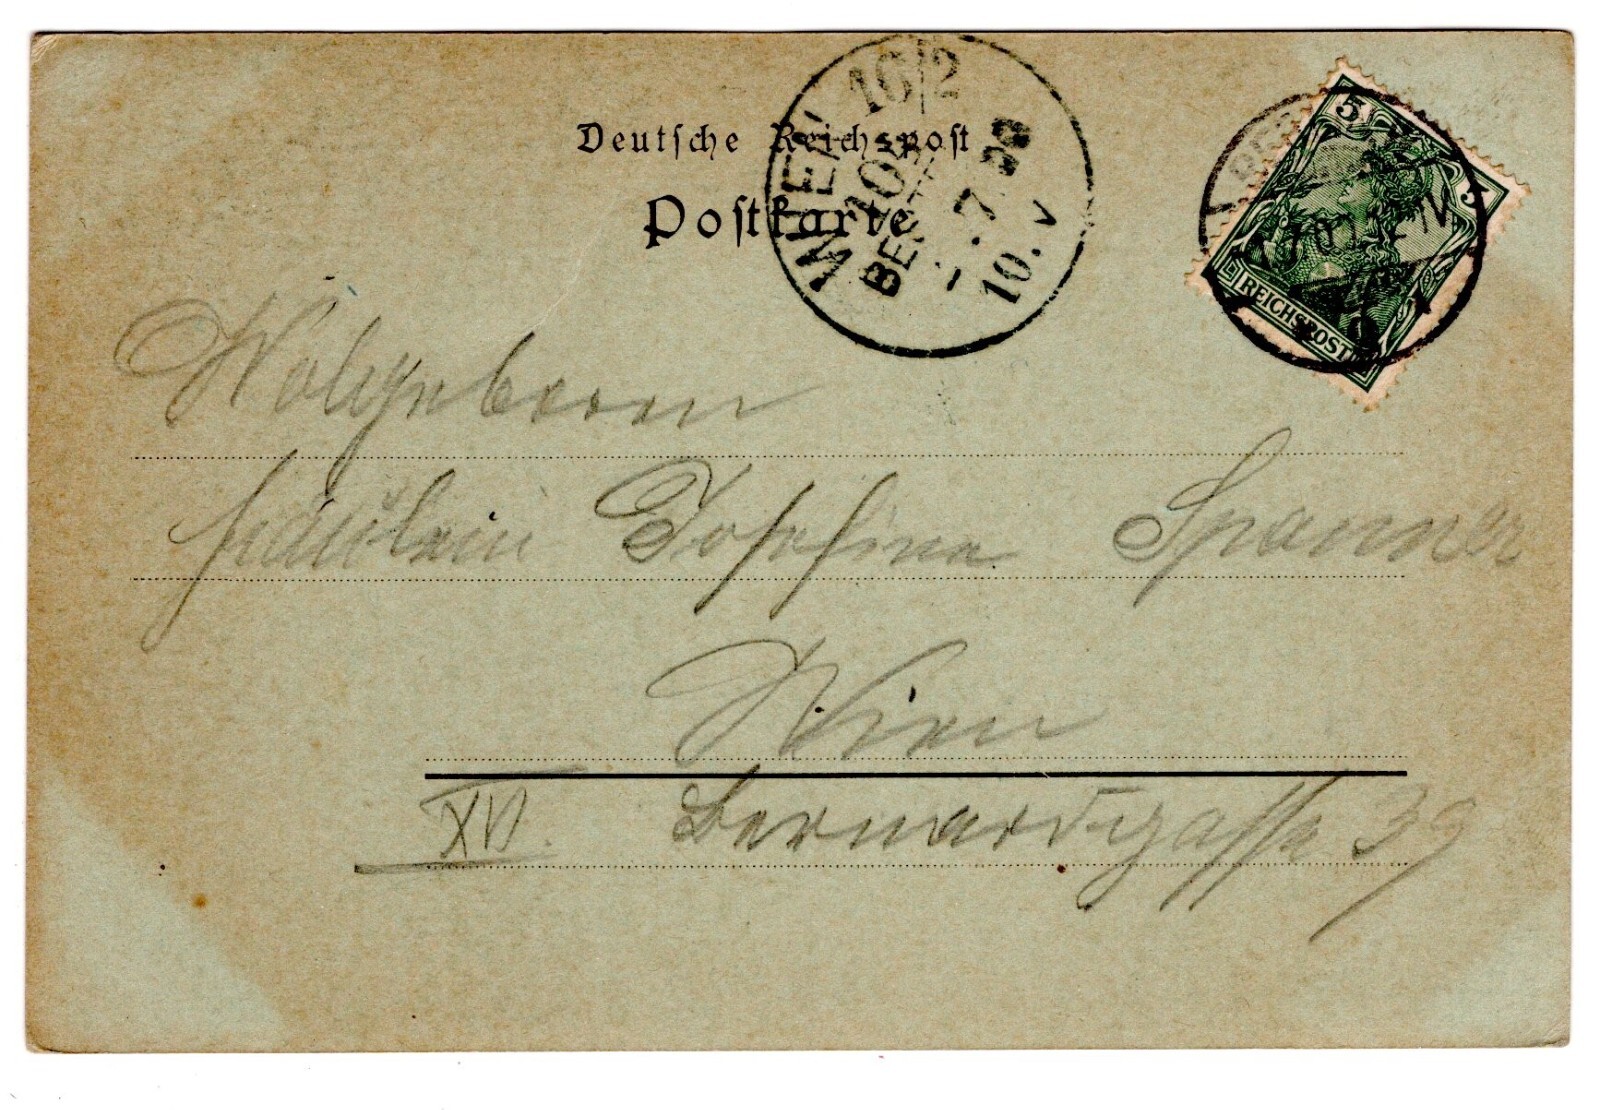 Deutsche Reichspost
Postkarte
WIEN 16/2
10
BEST
7.
10. V
5 5
REICHSPOST
Wohlgeboren
Fräulein Josefine Spanner
Wien
XVI. Bernardgasse 39